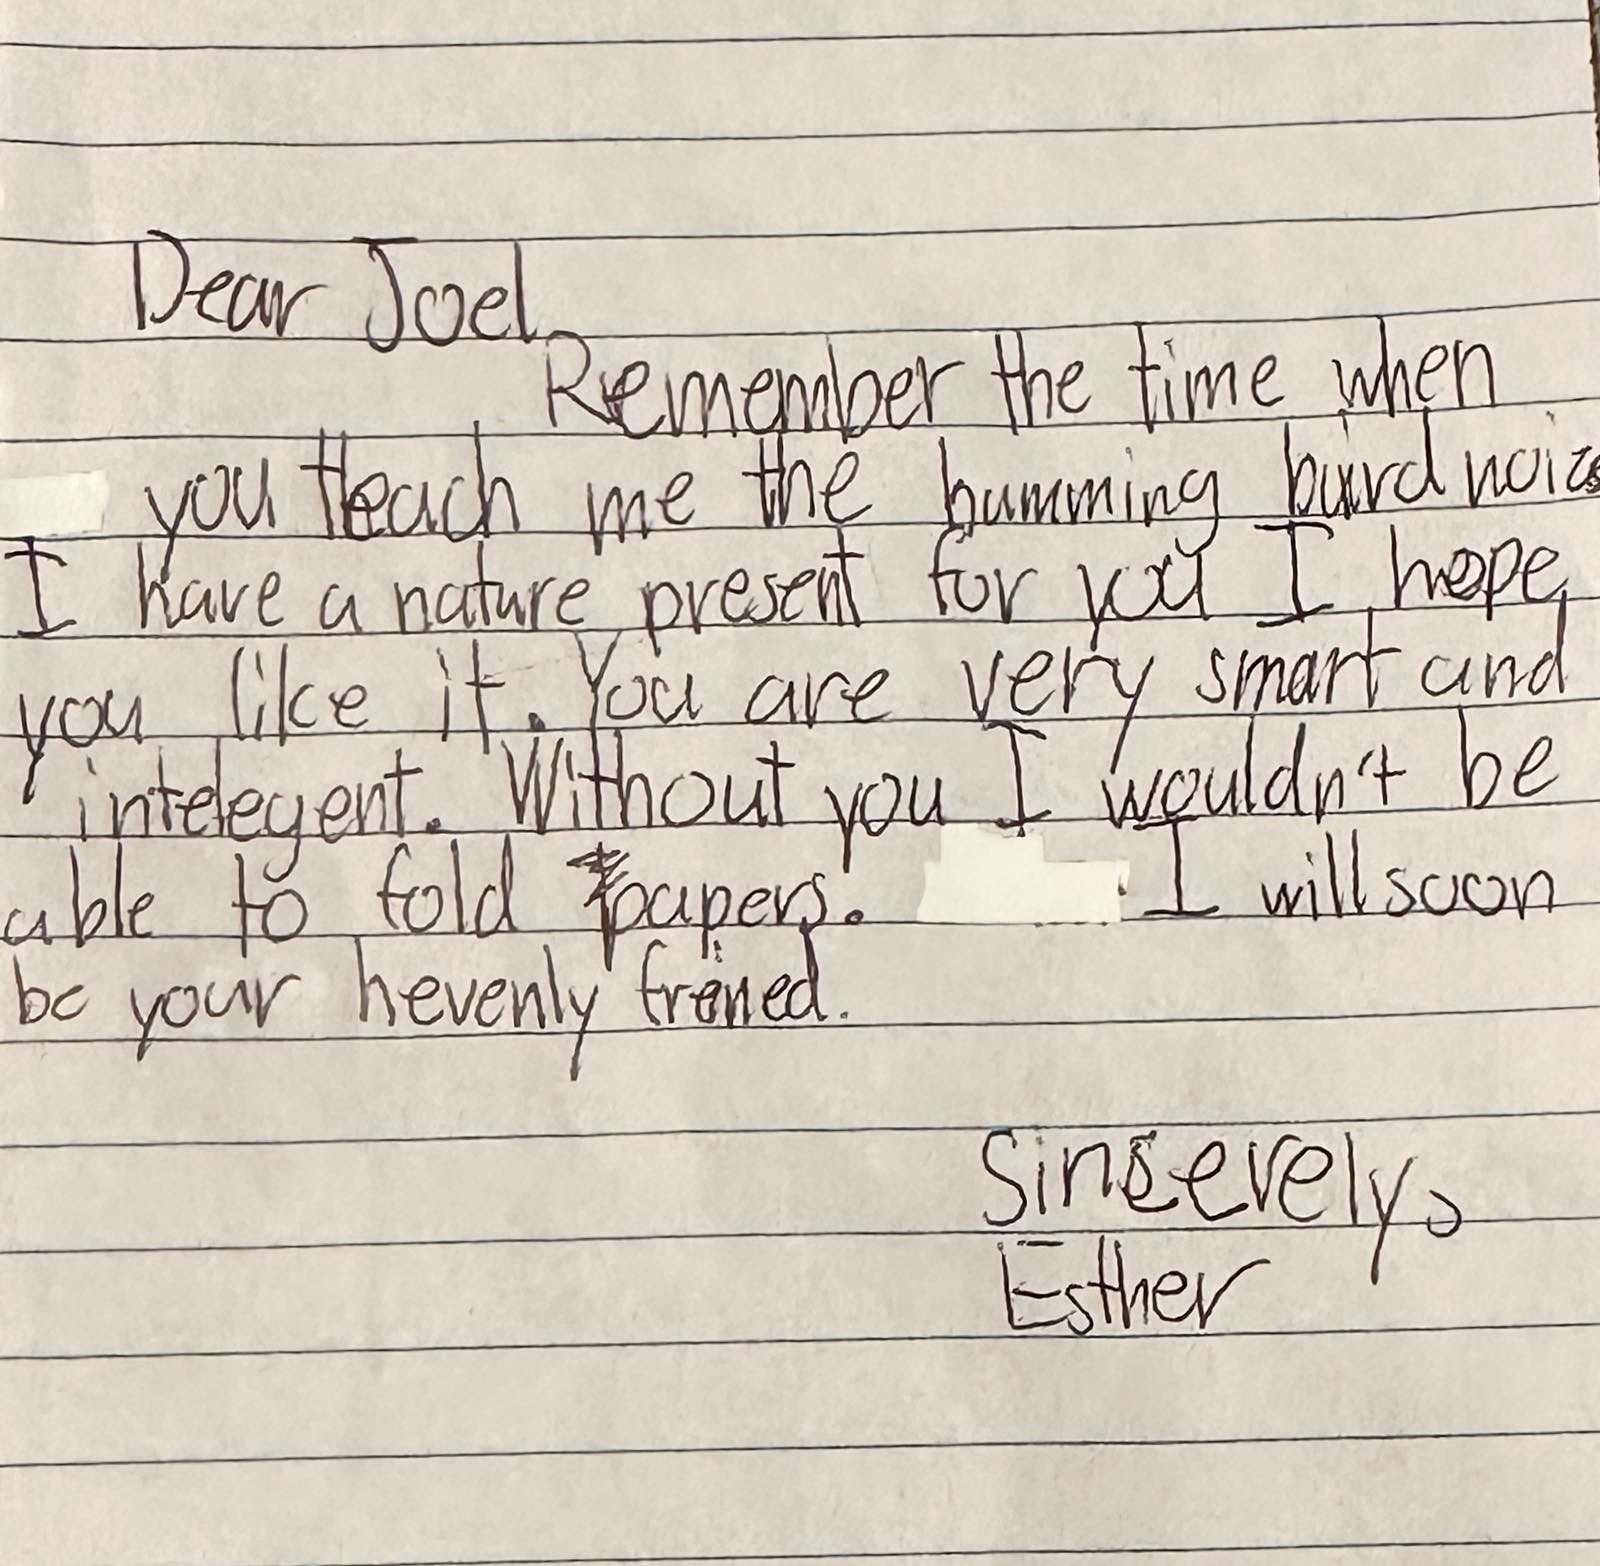 Dear Joel,
Remember the time when
you teach me the humming burd noice
I have a nature present for you I hope
you like it. You are very smart and
intelegent. Without you I wouldn't be
able to fold papers. I will soon
be your hevenly frened.
Sincerely,
Esther